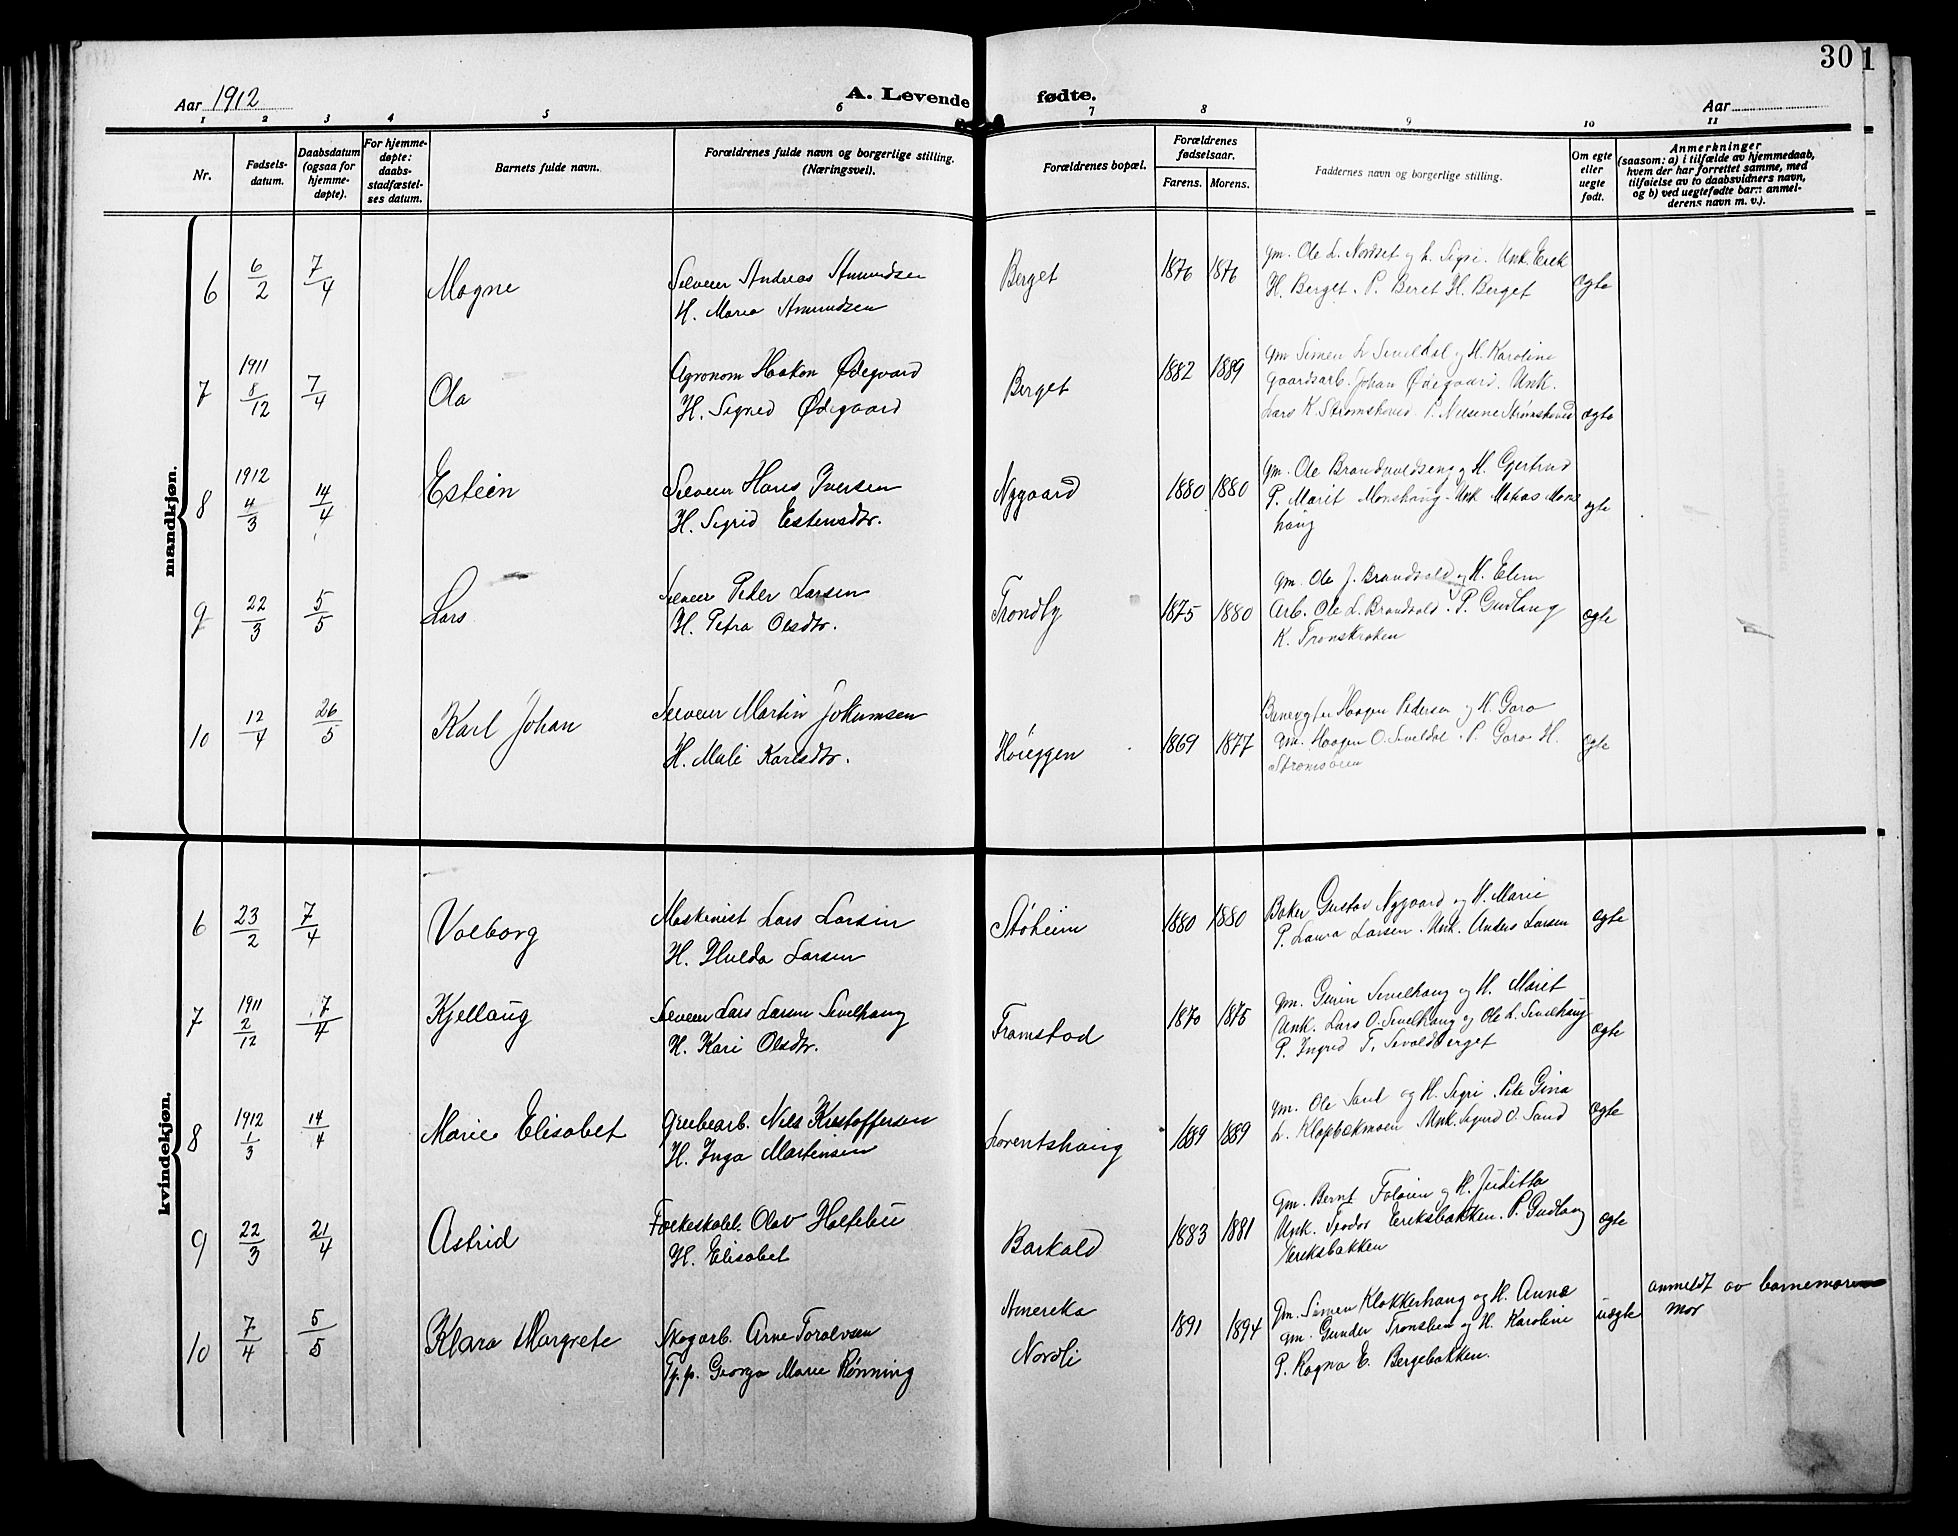 30
1
Aar 1912
A. Levende fødte.
Aar
1 2 3 4 5 6 7 8 9 10 11
Nr.
Fødsels-
datum.
Daabsdatum
(ogsaa for
hjemme-
døpte).
For hjemme-
døpte:
daabs-
stadfæstel-
ses datum.
Barnets fulde navn.
Forældrenes fulde navn og borgerlige stilling.
(Næringsvei).
Forældrenes bopæl.
Forældrenes
fødselsaar.
Farens. Morens.
Faddernes navn og borgerlige stilling.
Om egte
eller
uegte
født.
Anmerkninger
(saasom: a) i tilfælde av hjemmedaab,
hvem der har forrettet samme, med
tilføielse av to daabsvidners navn,
og b) ved uegtefødte barn: anmel-
derens navn m. v.).
mandkjøn.
6 6/2 7/4 Magne
Selveier Andreas Amundsen
H. Maria Amundsen
Berget 1876 1876
Gm. Ole L. Nordset og H. Sigri. Unk. Erik
H. Berget. P. Beret H. Berget
egte
7 1911 8/12 7/4 Ola
Agronom Haakon Ødegaard
H. Signed Ødegaard
Berget 1882 1889
Gm Simen L Siveldal og H. Karoline
Gaardsarb. Johan Ødegaard. Unk.
Lars K. Strømshoved P. Nilsine Strømshoved
egte
8 1912 4/3 14/4 Estein
Selveier Hans Iversen
H. Sigrid Estensdtr.
Nygaard 1880 1880
Gm. Ole Brandvoldseng og H. Gjertrud
P. Marit Monshaug. Unk Matias Mons
haug
egte
9 22/3 5/5 Lars
Selveier Peter Larsen
H. Petra Olsdtr.
Trondly 1875 1880
Gm. Ole J. Brandvold og H. Elin
Arb. Ole L. Brandvold. P. Gudlaug
K. Tronskroken
egte
10 12/4 26/5 Karl Johan
Selveier Martin Jokumsen
H. Mali Karlsdtr.
Høieggen 1869 1877
Haagen Pedersen og H. Goro
Gm. Haagen O. Siveldal. P. Goro H.
Strømsøien
egte
kvindekjøn.
6 23/2 7/4 Valborg
Maskinist Lars Larsen
H. Hulda Larsen
Støheim 1880 1880
Baker Gustav Nygaard og H. Marie
P. Laura Larsen. Unk. Anders Larsen
egte
7 1911 2/12 7/4 Kjellaug
Selveier Lars Larsen Sivelhaug
H. Kari Olsdtr.
Framstad 1870 1875
Gm. Sivelhaug og H. Marit
Unk. Lars O. Sivelhaug og Ole L. Sivelhaug
P. Ingrid T. Sevaldberget
egte
8 1912 1/3 14/4 Marie Elisabet
Grubearb. Nils Kristoffersen
H. Inga Martinsen
Lorentshaug 1889 1889
Gm. Ole Sand og H. Sigri. Pike Gina
L. Klapbækmoen Unk. Sigurd O. Sand
egte
9 22/3 21/4 Astrid
Folkeskolel. Olav Halfebu
H. Elisabet
Barkald 1883 1881
Gm. Bernt Foløien og H. Juditta
Unk. Teodor Eriksbakken. P. Gudlaug
Eriksbakken
egte
10 7/4 5/5 Klara Margrete
Skogarb. Arne Toralvsen
Tj.p. Georga Marie Rønning
Amerika
Nordli
1891 1894
Gm. Simen Klokkerhaug og H. Anne
Gm. Gunder Tronslien og H. Karoline
P. Ragna E. Bergebakken.
uegte
anmeldt av barnemoren
mor